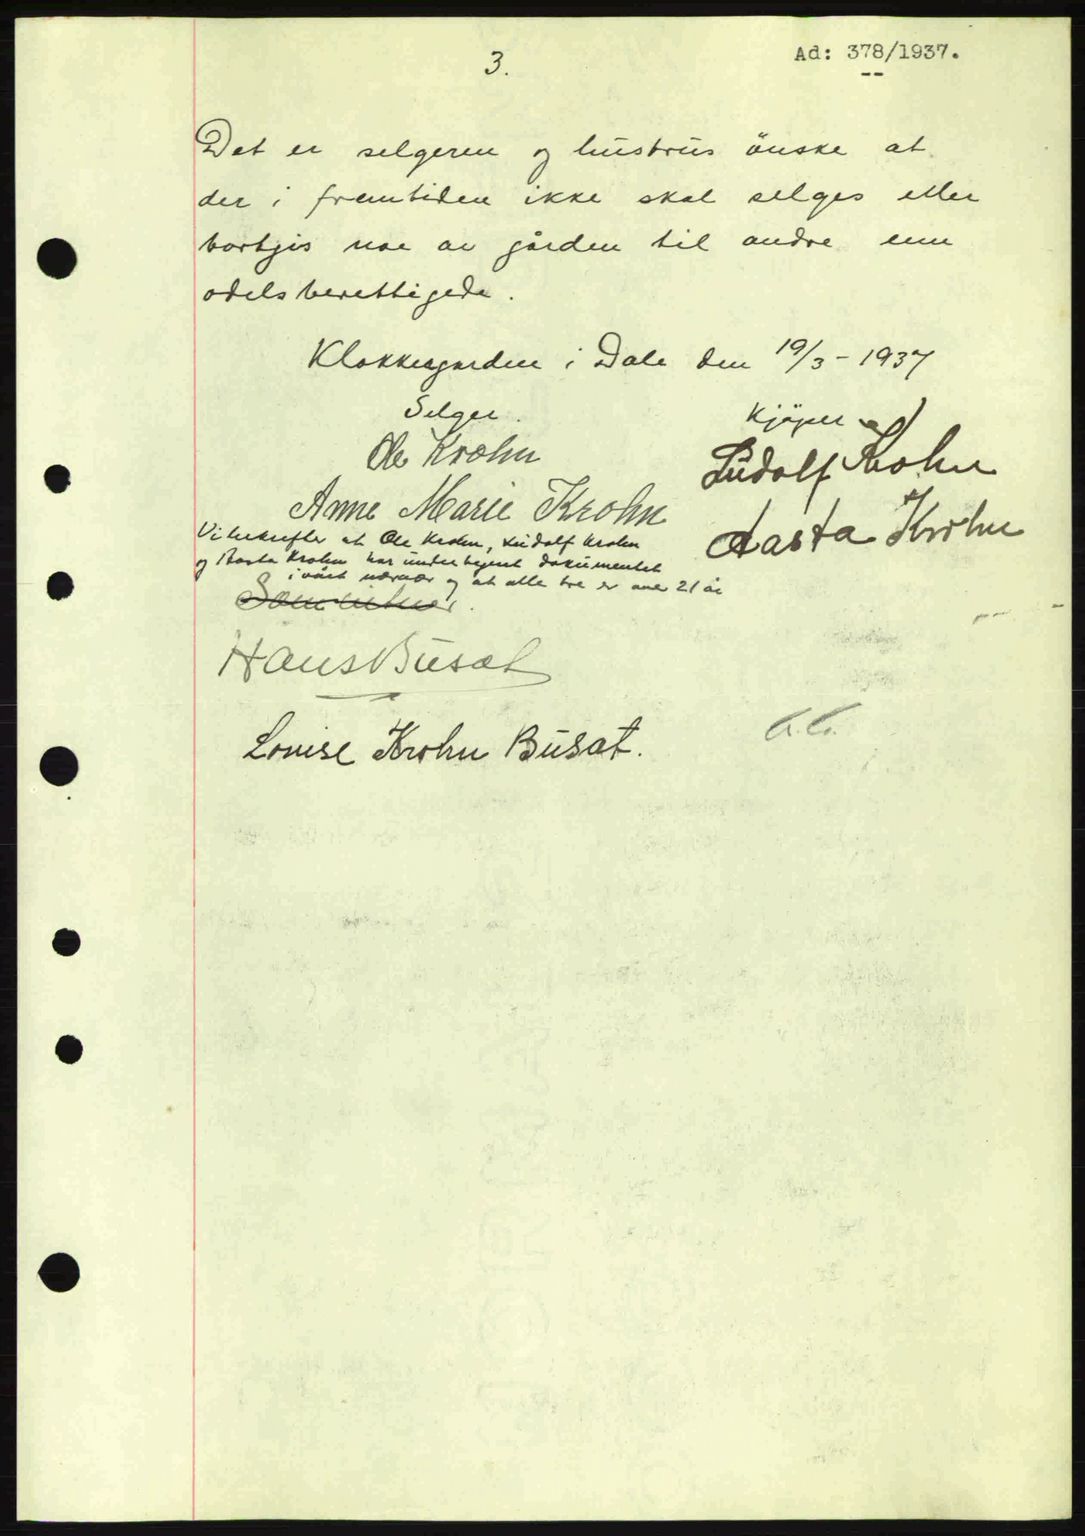 3.
Ad: 378/1937.
Det er selgeren og hustrus önske at
der i fremtiden ikke skal selges eller
bortgis noe av gården til andre enn
odelsberettigede.
Klokkergarden i Dale den 19/3 - 1937
Selger.
Kjöper
Ole Krohn
Ludolf Krohn
Anne Marie Krohn
Aasta Krohn
Vi bekrefter at Ole Krohn, Ludolf Krohn
og Aasta Krohn har undertegnet dokumentet
i vårt nærvær og at alle tre er over 21 år
Som vitner.
Hans Busat
Louise Krohn Busat.